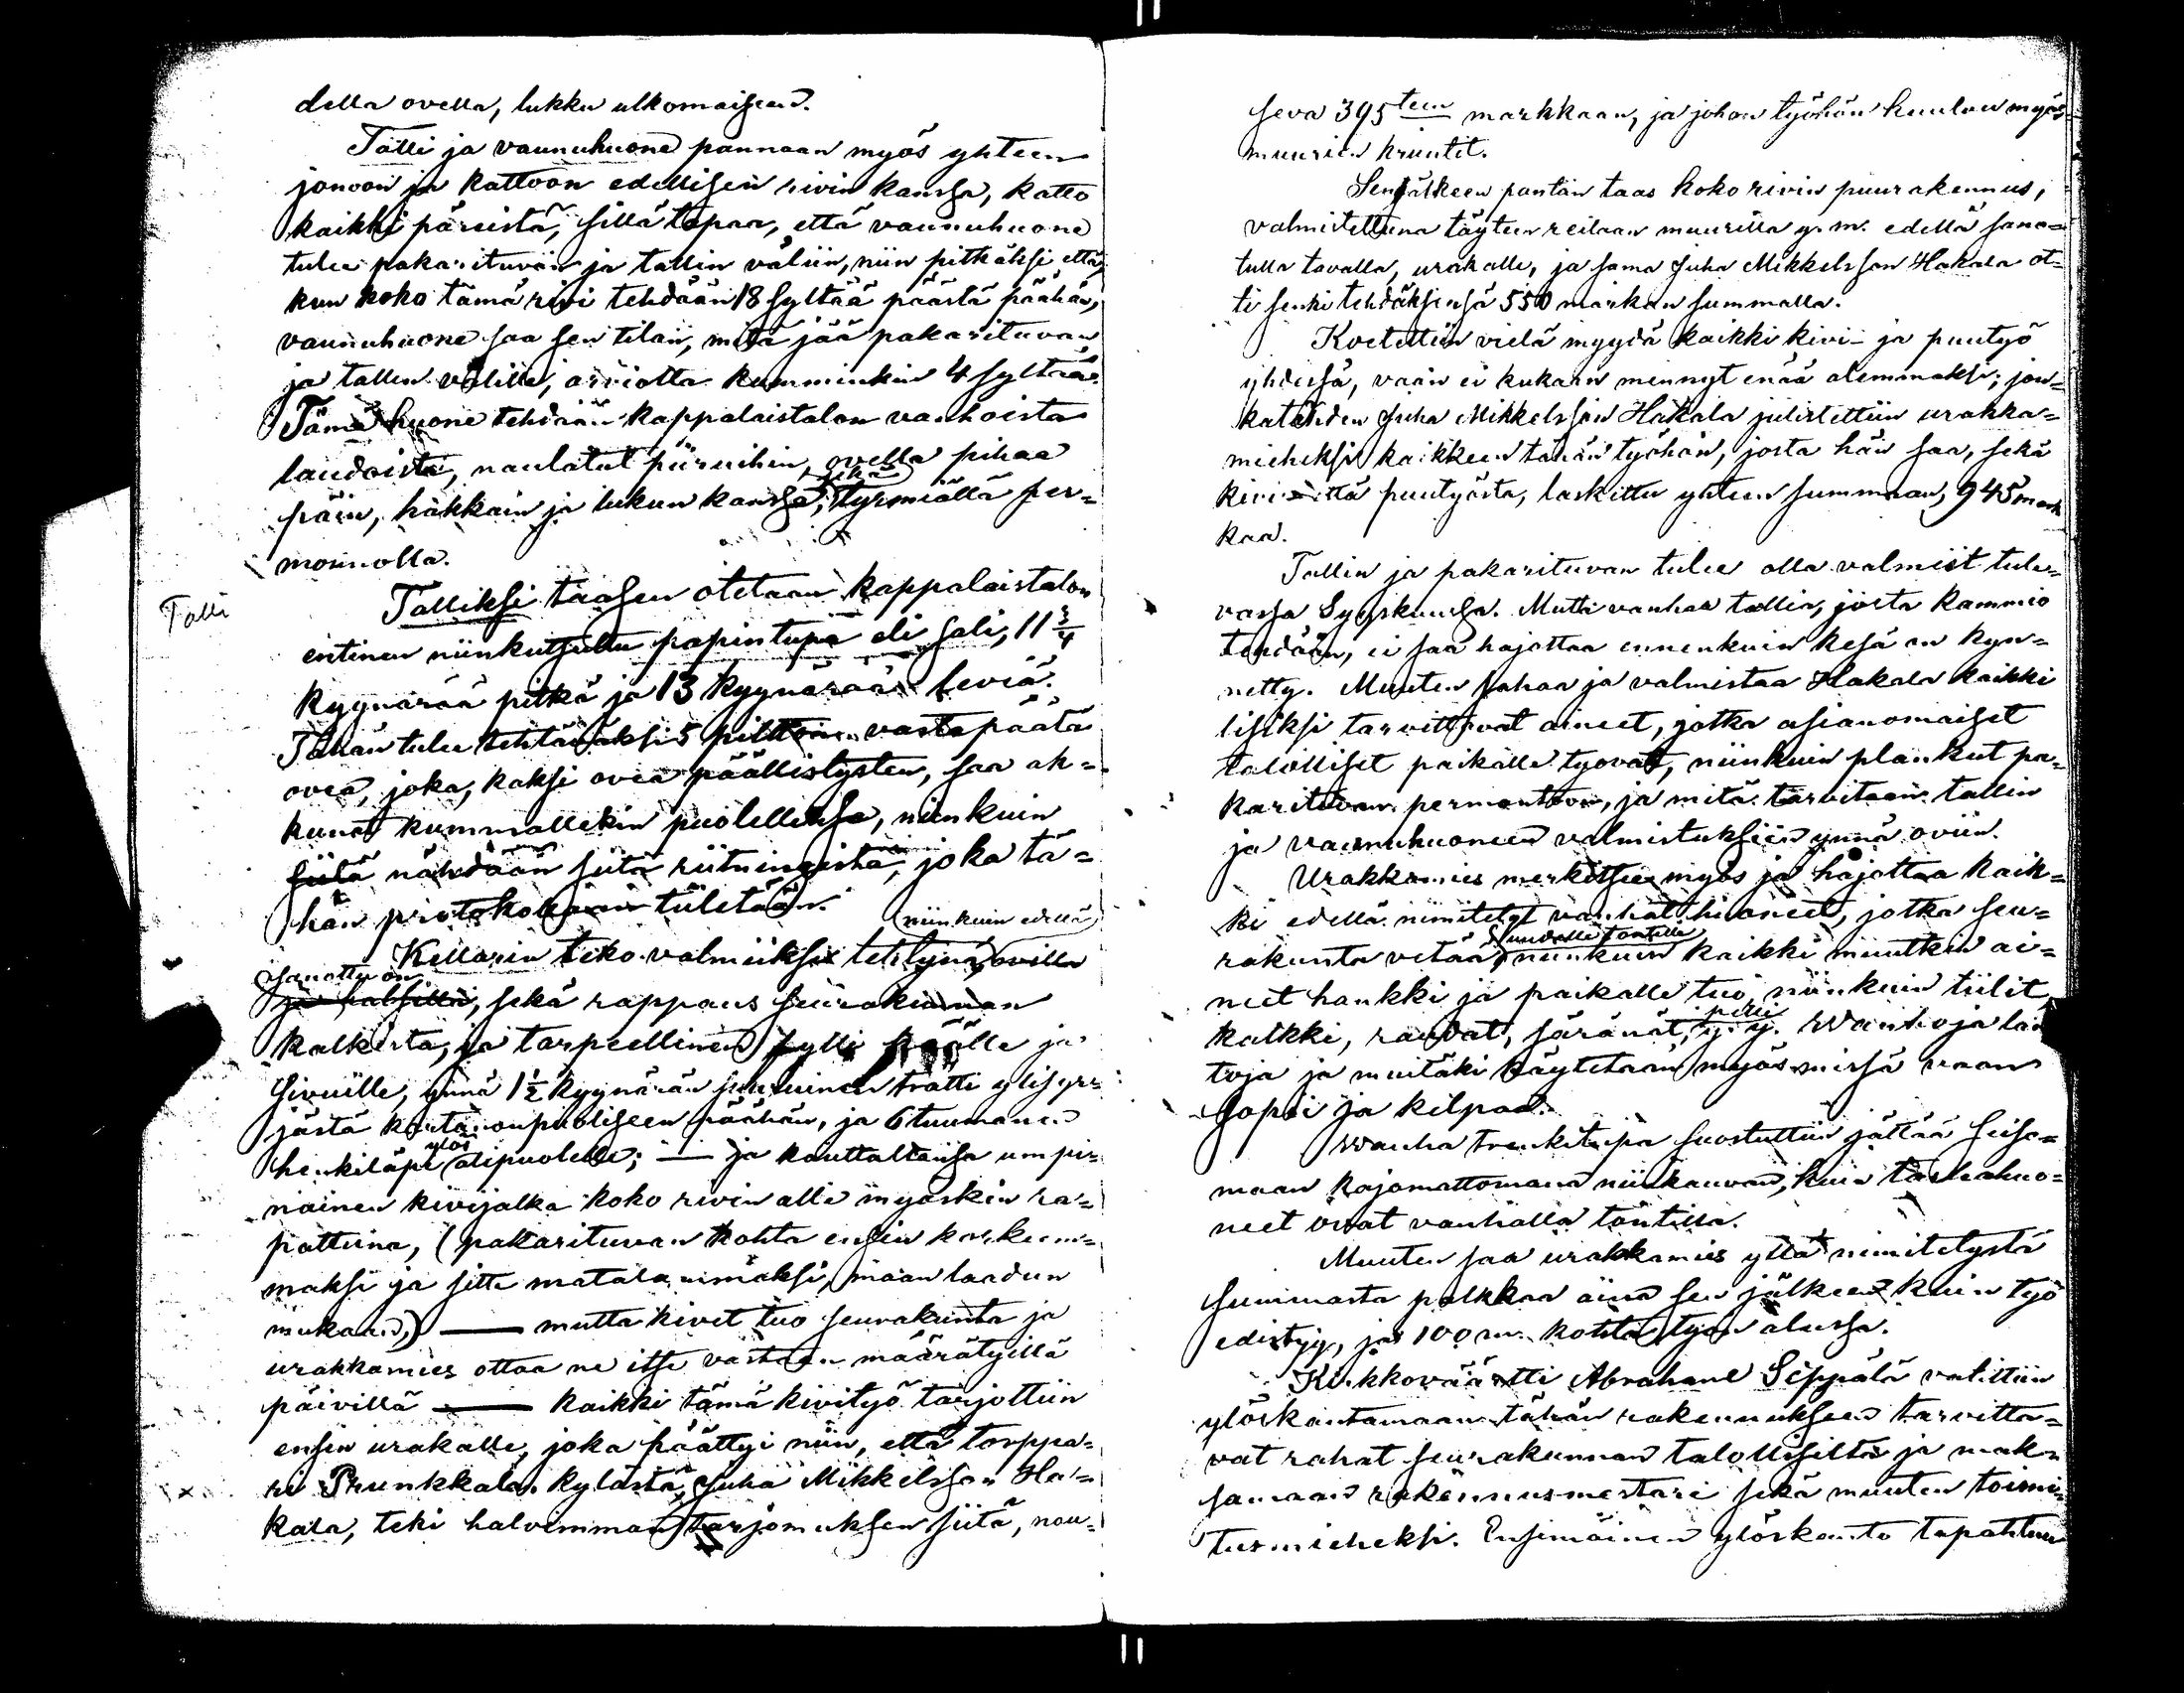 della ovella, lukku ulkomaisen.
Talli ja vaunuhuone pannaan myös yhteen
jonoon ja kattoon edellisen rivin kanssa, katto
kaikki päreistä, sillä tapaa, että vaunuhuone
tulee pakarituvan ja tallin väliin, niin pitkäksi että,
kun koko tämä rivi tehdään 18 syltää päästä päähän,
vaunuhuone saa sen tilan, mitä jää pakarituvan
ja tallin välille, arviolta kumminkin 4 syltää.
Tämä huone tehdään kappalaistalon vanhoista
laudoista, naulatut piiruihin, ovella pihaa
päin, hakkain ja lukun kanssa, sekä tyrmiällä per=
mannolla.
Talli
Talliksi taasen otetaan kappalaistalon
entinen niinkutsuttu papintupa eli sali, 11 3/4
kyynärää pitkä ja 13 kyynärää leviä.
Tähän tulee tehtäväksi 5 pilttuu vastapäätä
ovea, joka, kaksi ovea päällistysten, saa ak=
kunat kummallekin puolellensa, niinkuin
siitä nähdään siitä riitningistä, joka tä=
hän protokollaan tiiletään.
niinkuin edellä
Kellarin teko valmiiksi tehtynä, ovilla
sanottu on
ja haksilla, sekä rappaus seurakunnan
kalkista, ja tarpeellinen fylli päälle ja
sivuille, ynnä 1 1/2 kyynärän puuruinen tratti ylisyr=
jästä kartanonpuoliseen päähän, ja 6 tuumanen
henkiläpi ylös alipuolelle; — ja kauttaltansa umpi=
nainen kivijalka koko rivin alle myöskin ra=
pattuna, (pakarituvan kohta ensin korkeam=
maksi ja sitte matalammaksi, maan laadun
mukaan,) — mutta kivet tuo seurakunta ja
urakkamies ottaa ne itse vastaan määrätyillä
päivillä — kaikki tämä kivityö tarjottiin
ensin urakalle, joka päättyi niin, että torppa=
ri Prunkkalan kylästä, Juha Mikkelsson Ha=
kala, teki halvemman tarjomuksen siitä, nou=
seva 395 teen markkaan, ja johon työhön kuuluu myös
muurien kruntit.
Senjälkeen pantiin taas koko rivin puurakennus,
valmistettuna täyteen reilaan muurilla y. m. edellä sano=
tulla tavalla, urakalle, ja sama Juha Mikkelsson Hakala ot=
ti senki tehdäksensä 550 markan summalla.
Koetettiin vielä myydä kaikki kivi- ja puutyö
yhdessä, vaan ei kukaan mennyt enää alemmaksi; jon=
katähden Juha Mikkelsson Hakala julistettiin urakka=
mieheksi kaikkeen tähän työhön, josta hän saa, sekä
kivi- että puutyöstä, laskettu yhteen summaan, 945 mark
kaa.
Tallin ja pakarituvan tulee olla valmiit tule=
vassa Syyskuussa. Mutta vanhaa tallia, josta kammio
tehdään, ei saa hajottaa ennenkuin kesä on kyn=
netty. Muuten sahaa ja valmistaa Hakala kaikki
lisiksi tarvittavat aineet, jotka asianomaiset
talolliset paikalle tyovat, niinkuin plankut pa=
karituvan permantoon, ja mitä tarvitaan tallin
ja vaunuhuoneen valmistuksiin ynnä oviin.
Urakkamies merkitsee myös ja hajottaa kaik=
ki edellä nimitetyt vanhat huoneet, jotka seu=
rakunta vetää uudelle tontille, niinkuin kaikki muutkin ai=
neet hankki ja paikalle tuo, niinkuin tiilit,
kalkki, raudat, säränät, pelli y. y. Wanhoja lau
toja ja muitaki käytetään myös missä vaan
sopii ja kelpaa.
Wanha trenkitupa suostuttiin jättää seiso=
maan kajomattomana niinkauvan, kuin karjahuo=
neet ovat vanhalla tontilla.
Muuten saa urakkamies yllä nimitetystä
summasta palkkaa aina sen jälkeen kuin työ
edistyy, ja 100 m. kohta työn alussa.
Kirkkoväärtti Abraham Seppälä valittiin
ylöskantamaan tähän rakennukseen tarvitta=
vat rahat seurakunnan talollisilta ja mak=
samaan rakennusmestari sekä muuten toimi=
tusmieheksi. Ensimäinen ylöskanto tapahtuu